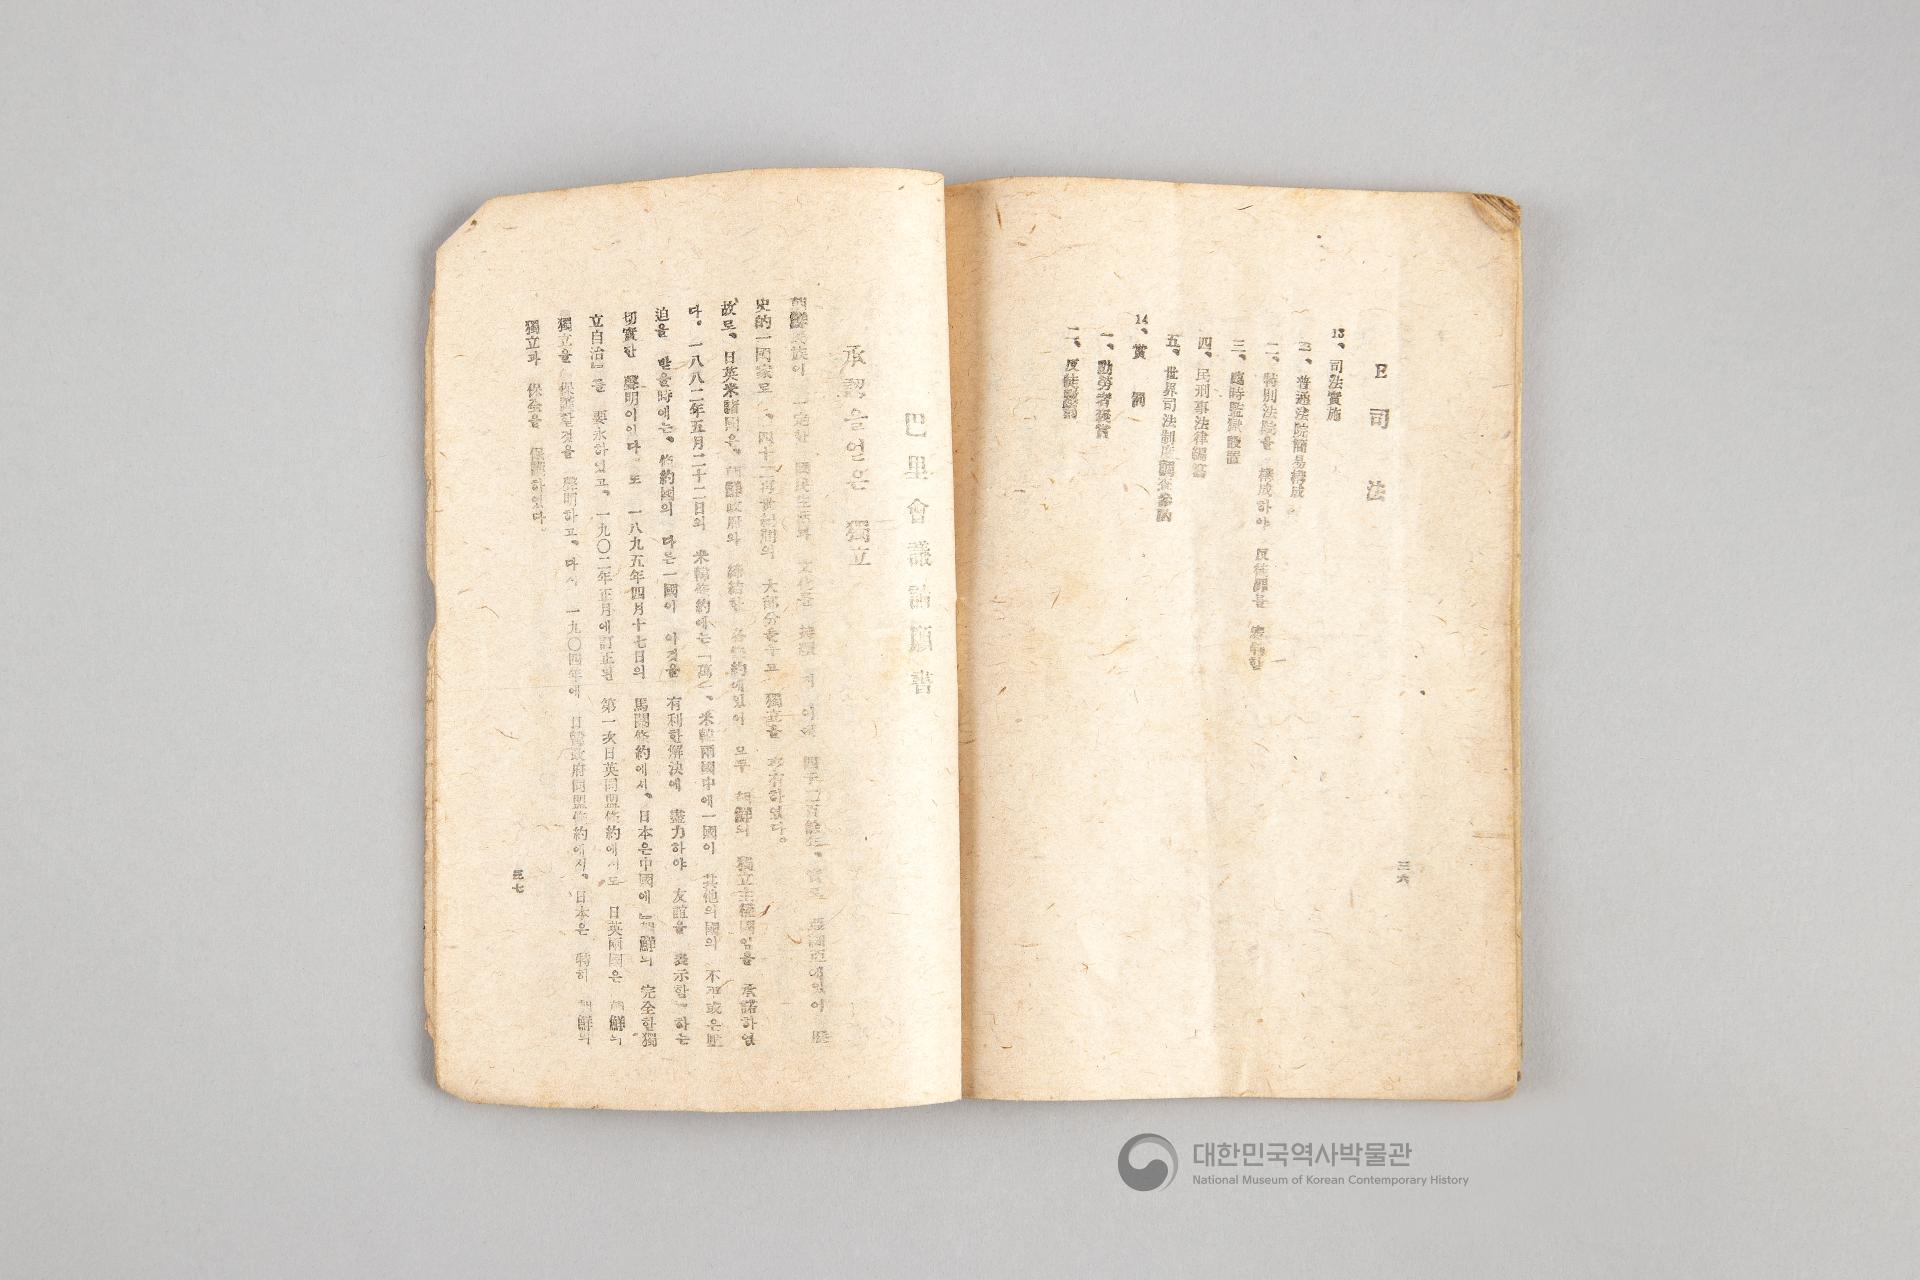 E 司法
13、司法實施
一、普通法院簡易構成
二、特別法院을 構成하야 反徒罪를 審判함
三、臨時監獄設置
四、民刑事法律編纂
五、世界司法制度調査參酌
14、賞 罰
一、勤勞者褒賞
二、反徒懲罰
三六
巴里會議請願書
承認을얻은 獨立
朝鮮民族이 一定한 國民生活과 文化를 四千二百餘年、亞細亞에있어 歷
史的一國家로、四十二世紀間의 大部分을두고 獨立을 享有하였다。
故로、日英米諸國은、朝鮮政府와 締結한 各條約에있어 모두 朝鮮의 獨立主權國임을 承諾하였
다。一八八二年五月二十二日의 米韓條約에는「萬一、米韓兩國中에一國이 其他의國의 不正或은壓
迫을 받을時에는、條約國의 다른一國이 이것을 有利한解決에 盡力하야 友誼을 表示함」하는
切實한 聲明이있다 또 一八九五年四月十七日의 馬關條約에서、日本은中國에『朝鮮의 完全한獨
立自治』를 要求하였고、一九〇二年正月에訂正된 第一次日英同盟條約에서도 日英兩國은 朝鮮의
獨立을 保護할것을 聲明하고、다시 一九〇四年에 日韓政府同盟條約에서、日本은 特히 朝鮮의
獨立과 保全을 保護하였다。
三七
대한민국역사박물관
National Museum of Korean Contemporary History